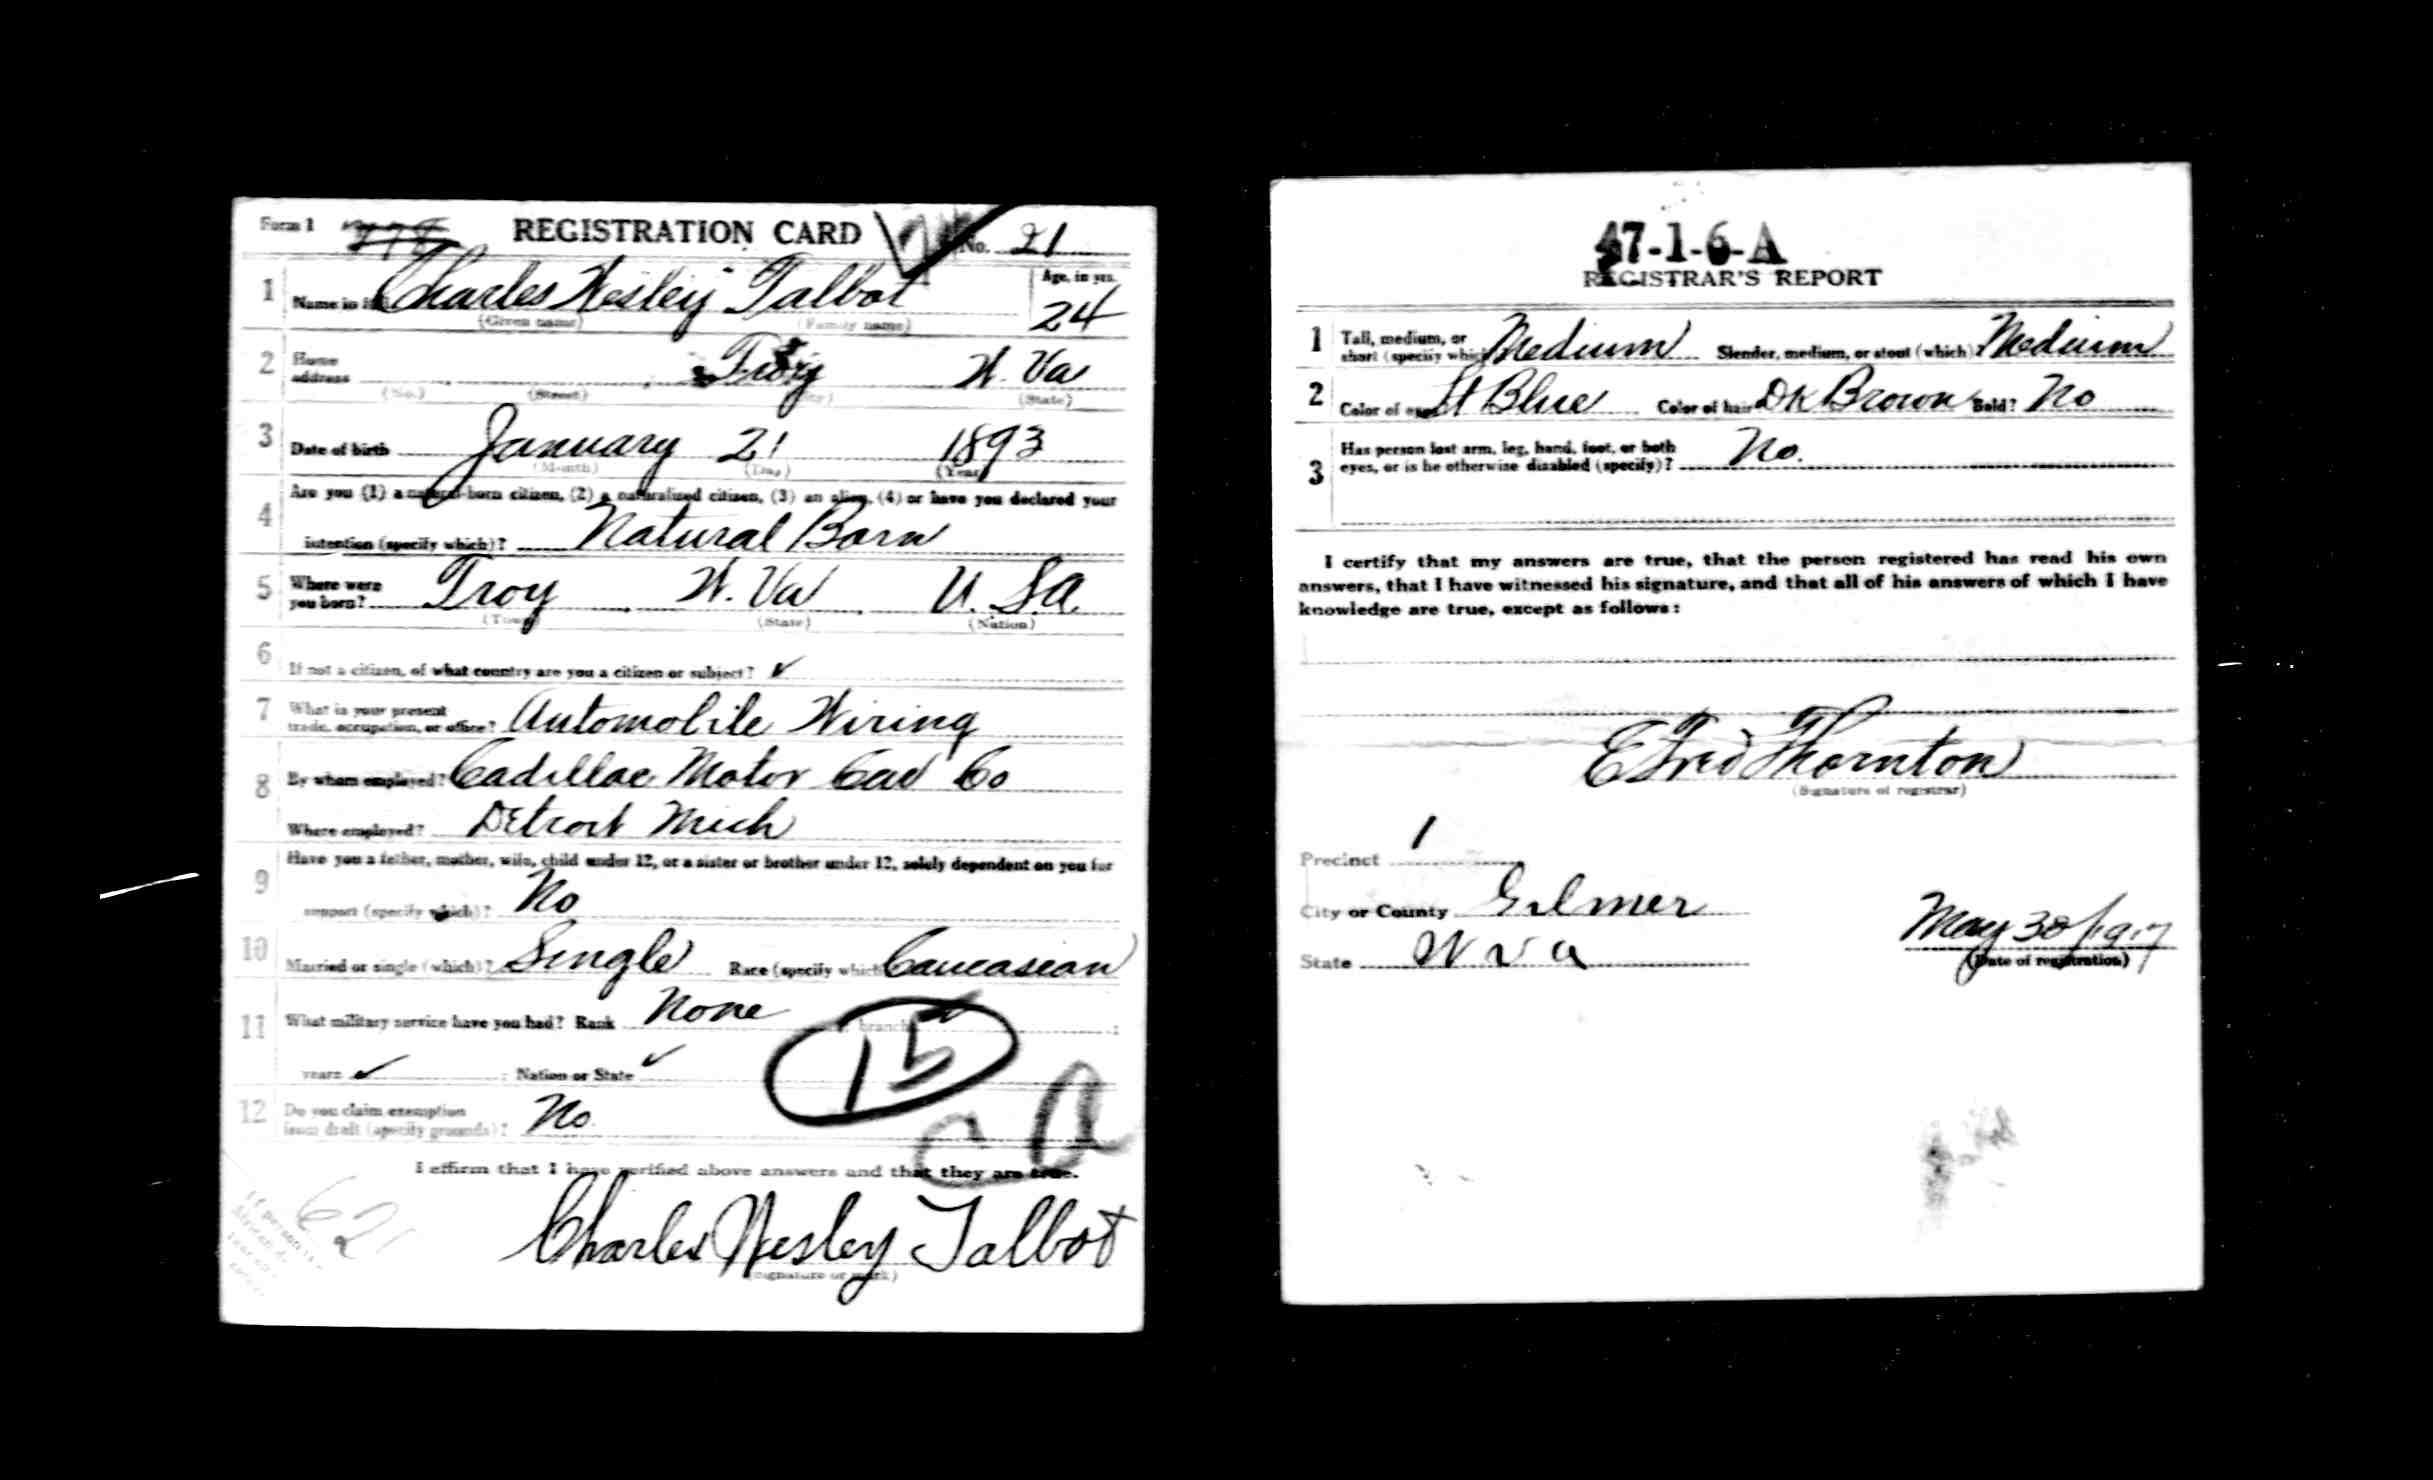 Form 1 REGISTRATION CARD No. 21
1 Name in full Charles Wesley Talbot Age, in yrs. 24
(Given name) (Family name)
2 Home address Troy W. Va
(No.) (Street) (City) (State)
3 Date of birth January 21 1893
(Month) (Day) (Year)
4 Are you (1) a natural-born citizen, (2) a naturalized citizen, (3) an alien, (4) or have you declared your
intention (specify which)? Natural Born
5 Where were you born? Troy W. Va U. S. A.
(Town) (State) (Nation)
6 If not a citizen, of what country are you a citizen or subject? ✓
7 What is your present trade, occupation, or office? Automobile Wiring
8 By whom employed? Cadillac Motor Car Co
Where employed? Detroit Mich
9 Have you a father, mother, wife, child under 12, or a sister or brother under 12, solely dependent on you for
support (specify which)? No
10 Married or single (which)? Single Race (specify which) Caucasian
11 What military service have you had? Rank None branch
years ✓ ; Nation or State ✓
15
12 Do you claim exemption from draft (specify grounds)? No.
C A
I affirm that I have verified above answers and that they are true.
621
Charles Wesley Talbot
(Signature or mark)
47-1-6-A
REGISTRAR'S REPORT
1 Tall, medium, or short (specify which) Medium Slender, medium, or stout (which) Medium
2 Color of eyes Lt Blue Color of hair Dk Brown Bald? No
3 Has person lost arm, leg, hand, foot, or both
eyes, or is he otherwise disabled (specify)? No.
I certify that my answers are true, that the person registered has read his own
answers, that I have witnessed his signature, and that all of his answers of which I have
knowledge are true, except as follows:
E Fred Thornton
(Signature of registrar)
Precinct 1
City or County Gilmer
State W Va
May 30/1917
(Date of registration)